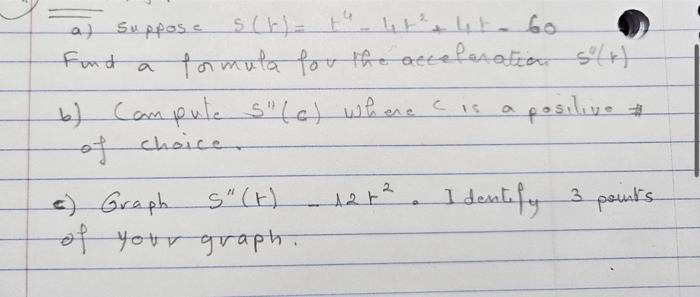 a) Suppose s(t) = t⁴ - 4t² + 4t - 60
Find a formula for the acceleration s"(t)
b) Compute s"(c) where c is a positive #
of choice.
c) Graph s"(t) - 12t². Identify 3 points
of your graph.